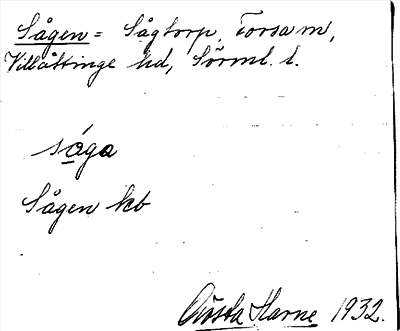 Sågen = Sågtorp, Torsa m,
Villåttinge hd, Sörml. l.
såga
Sågen kb
Gösta Harne 1932.